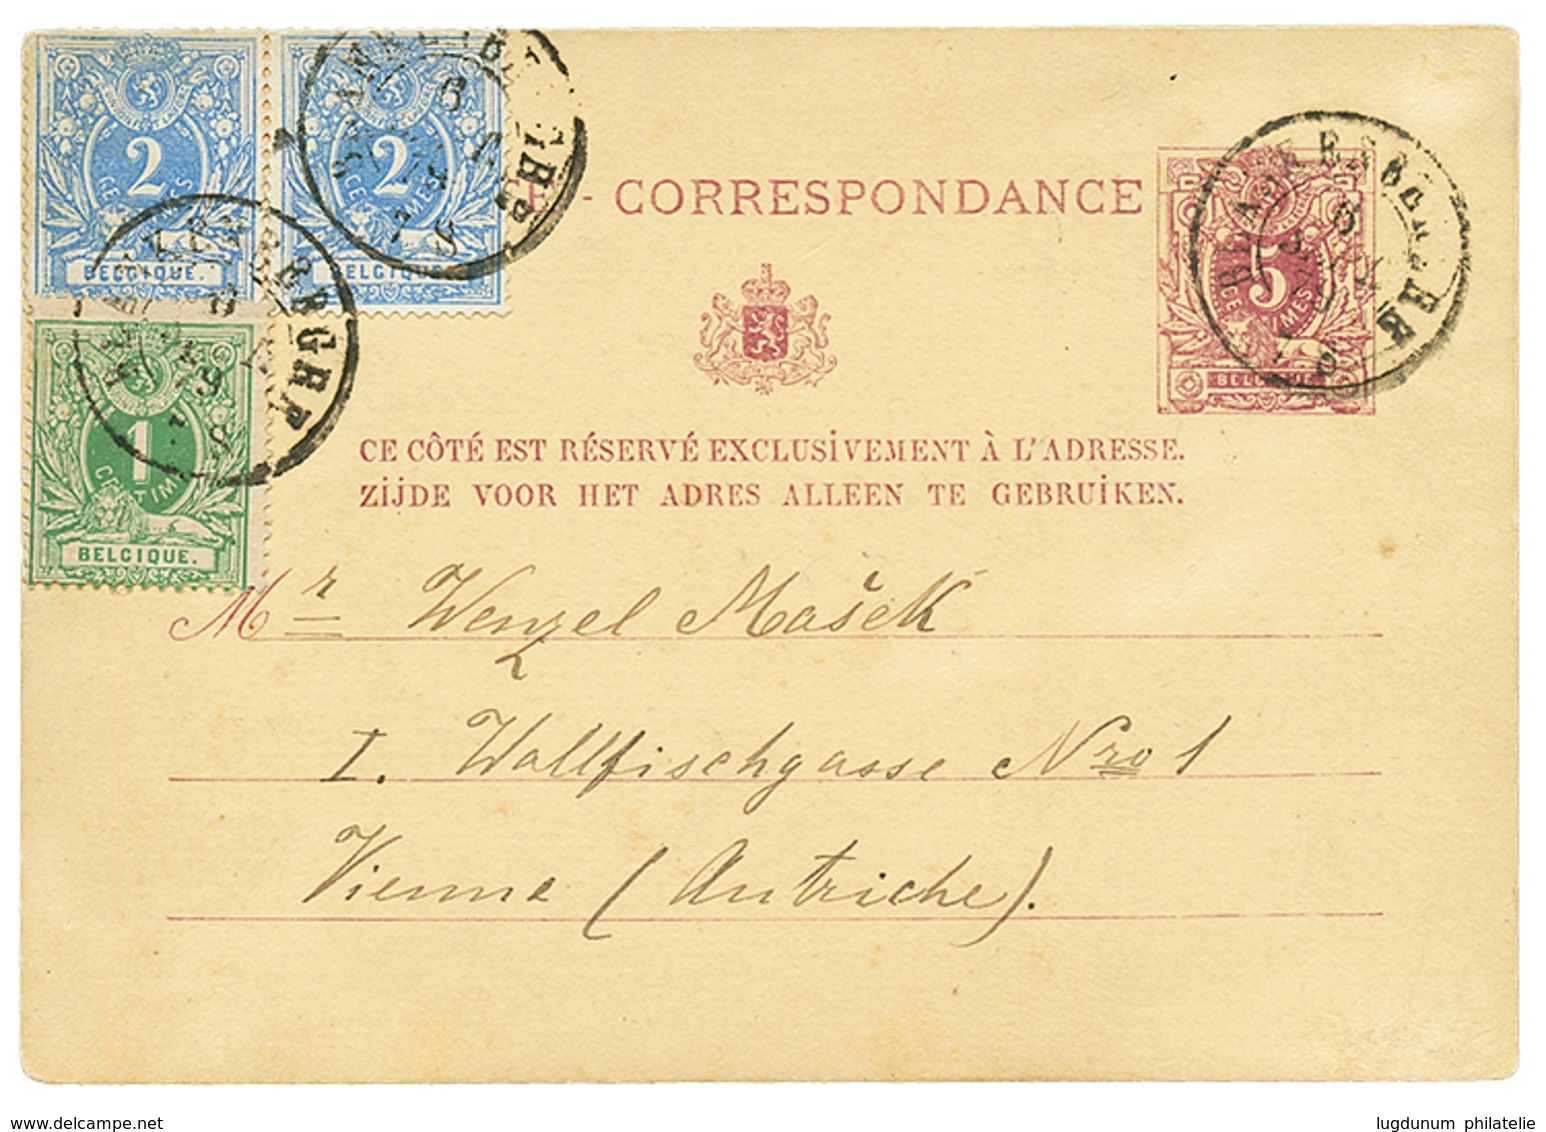 2
CENTIMES
BELGIQUE.
2
CENTIMES
BELGIQUE.
1
CENTIME
BELGIQUE.
BLANKENBERGHE
BLANKENBERGHE
BLANKENBERGHE
E - CORRESPONDANCE
5
CENTIMES
BELGIQUE
CE CÔTÉ EST RÉSERVÉ EXCLUSIVEMENT À L'ADRESSE.
ZIJDE VOOR HET ADRES ALLEEN TE GEBRUIKEN.
Mr Wenzel Mašek
I. Wallfischgasse Nro 1
Vienne (Autriche).
www.delcampe.net
lugdunum philatelie